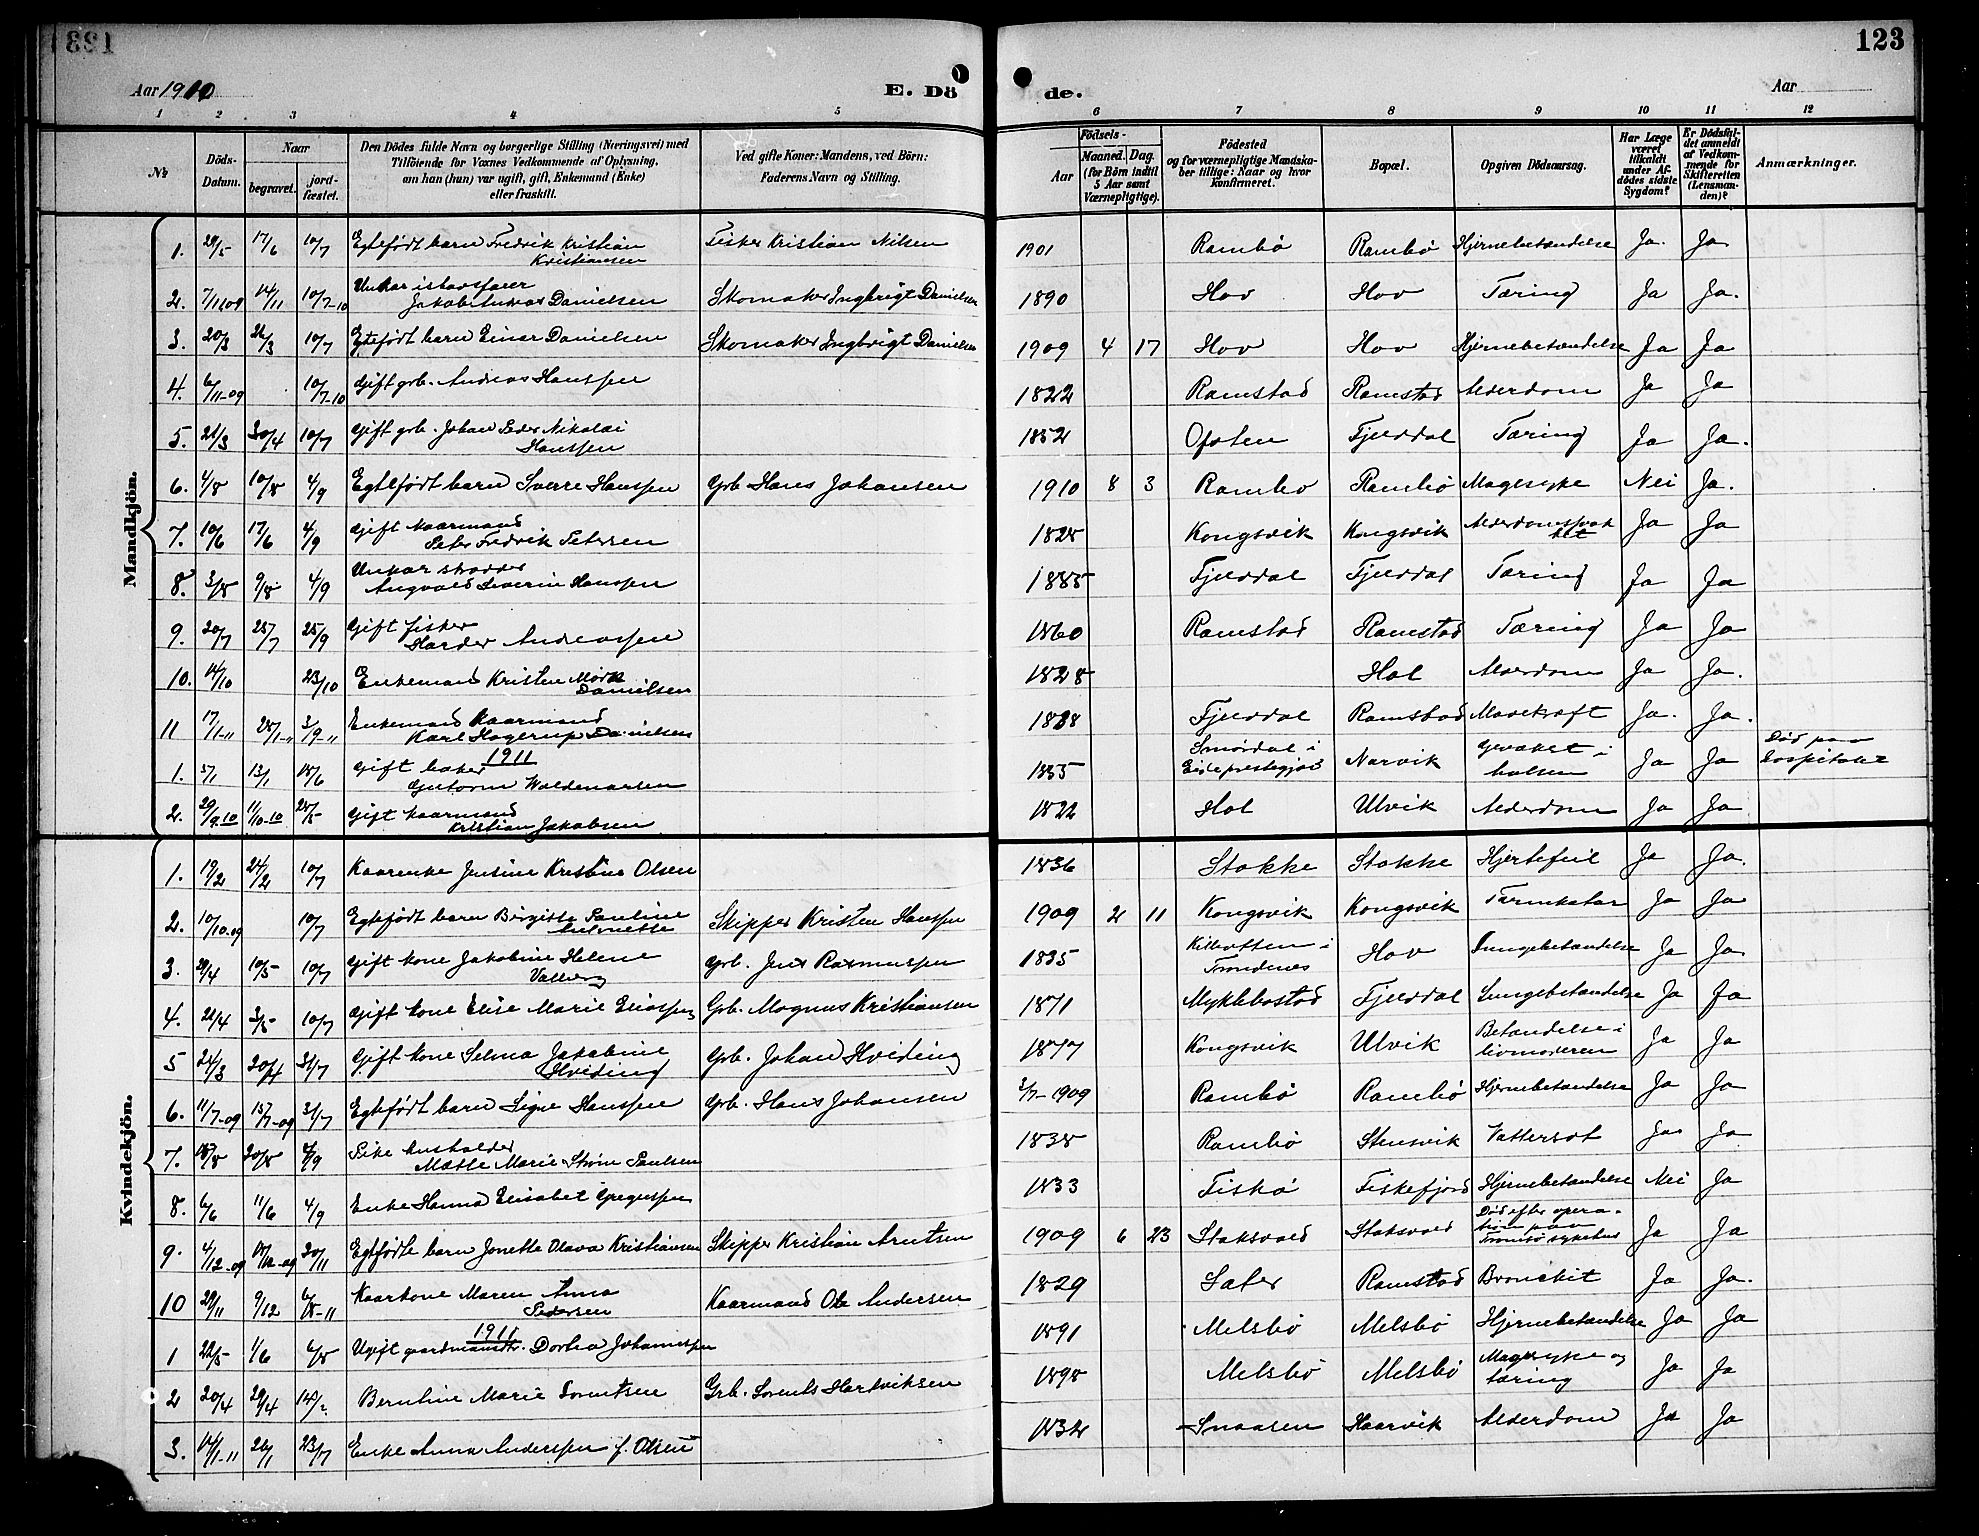 123
Aar 1910
E. Dö
de.
Aar
1 2 3 4 5 6 7 8 9 10 11 12
№
Döds-Datum.
Naar
begravet.
jord-fæstet.
Den Dödes fulde Navn og borgerlige Stilling (Næringsvei) med
Tilföiende for Voxnes Vedkommende af Oplysning,
om han (hun) var ugift, gift, Enkemand (Enke)
eller fraskilt.
Ved gifte Koner: Mandens, ved Börn:
Faderens Navn og Stilling.
Födsels-
Aar
Maaned. Dag.
(for Börn indtil
5 Aar samt
Værnepligtige).
Födested
og for værnepligtige Mandska-
ber tillige: Naar og hvor
konfirmeret.
Bopæl.
Opgiven Dödsaarsag.
Har Læge
været
tilkaldt
under Af-
dödes sidste
Sygdom?
Er Dödsfal-
det anmeldt
af Vedkom-
mende for
Skifteretten
(Lensman-
den)?
Anmærkninger.
Mandkjön.
1. 29/5 17/6 10/7 Egtefödt barn Fredrik Kristian Kristiansen Fisker Kristian Nilsen 1901 Rambö Rambö Hjernebetændelse Ja. Ja
2. 7/11 09 14/11 10/7-10 Unkar ishavsfarer Jakob Danielsen Skomaker Ingbrigt Danielsen 1890 Hov Hov Tæring Ja Ja.
3. 20/3 26/3 10/7 Egtefödt barn Einar Danielsen Skomaker Ingbrigt Danielsen 1909 4 17 Hov Hov Hjernebetændelse Ja Ja
4. 6/11-09 10/7-10 Gift grb. Andreas Hanssen 1822 Ramstad Ramstad Alderdom Ja Ja
5. 21/3 30/4 10/7 Gift grb. Johan Peder Nikolai Hanssen 1852 Ofoten Fjelldal Tæring Ja Ja.
6. 4/8 10/8 4/9 Egtefödt barn Sverre Hanssen Grb Hans Johansen 1910 8 3 Rambö Rambö Magesyke Nei Ja.
7. 10/6 17/6 4/9 Gift kaarmand Peter Fredrik Petersen 1825 Kongsvik Kongsvik Ja Ja
8. 3/8 9/8 4/9 Unkar Angvald Severin Hanssen 1885 Fjelldal Fjelldal Tæring Ja Ja
9. 20/7 25/7 25/9 Gift fisker Harder Andreassen 1860 Ramstad Ramstad Tæring Ja Ja
10. 14/10 23/10 Enkemand Kristen Mörk Danielsen 1828 Hol Alderdom Ja Ja.
11 17/1-11 3/9-11 Enkemand Kaarmand Karl Hagerup Danielsen Fjelldal Ramstad Mavekræft Ja. Ja.
1911
1. 5/1 13/1 18/6 Gift baker Guttorm Waldemarsen Smördal i Narvik i halsen Ja Ja Död paa hospitalet
2. 29/9.10 11/10-10 Gift kaarmand Kristian Jakobsen 1822 Hol Ulvik Alderdom Ja Ja
Kvindekjön.
1. 19/2 24/2 10/7 Kaarenke Jensine Kristine Olsen 1836 Stokke Stokke Hjertefeil Ja Ja.
2. 10/10.09 10/7 Egtefödt barn Birgitte Pauline Skipper Kristen Hanssen 1909 2 11 Kongsvik Kongsvik Tarmkatar Ja Ja
3. 29/4 10/5 10/7 Gift kone Jakobine Helene Valberg Grb. Jens Rasmussen 1835 i Trondenes Hov Lungebetændelse Ja Ja.
4. 21/4 3/5 10/7 Gift kone Elise Marie Eliassen Grb. Magnus Kristiansen 1871 Myklebostad Fjelldal Lungebetændelse Ja Ja
5 24/3 30/4 31/7 Gift kone Selma Jakobine Hveding Grb. Johan Hveding 1877 Kongsvik Ulvik Betændelse i livmoderen Ja Ja
6. 11/7-09 15/7-09 31/7 Egtefödt barn Signe Hanssen Grb. Hans Johansen 2/7-1909 Rambö Rambö Hjernebetændelse Ja Ja
7. 20/8 4/9 Pike husholder Mætte Marie Ström Paulsen 1838 Rambö Stensvik Vattersot Ja Ja
8. 6/6 11/6 4/9 Enke Hanna Elisabet Gregussen 1833 Fiskö Fiskefjord Hjernebetændelse Nei Ja
9. 4/12-09 18/12-09 20/11 Egtefödte barn Jonette Olava Kristiansen Skipper Kristian Arntsen 1909 6 23 Staksvold Staksvold Död efter opera-tion paa Tromsö sykehus Ja Ja
10 29/11 9/12 6/8-11 Kaarkone Maren Anna Pedersen Kaarmand Ole Andersen 1829 Sæter Ramstad Bronchit Ja Ja.
1911
1 22/5 1/6 6/8 Ugift gaardmandsdtr. Dortea Johannessen 1891 Melsbö Melsbö Hjernebetændelse Ja Ja
2 20/4 29/4 Berntine Marie Sorentsen Grb. Sorents Hartviksen 1898 Melsbö Melsbö Magesyke og tæring Ja Ja
3. 14/1-11 26/1 23/7 Enke Anna Anderssen f. Olsen 1832 Snaasen Haarvik Alderdom Ja Ja